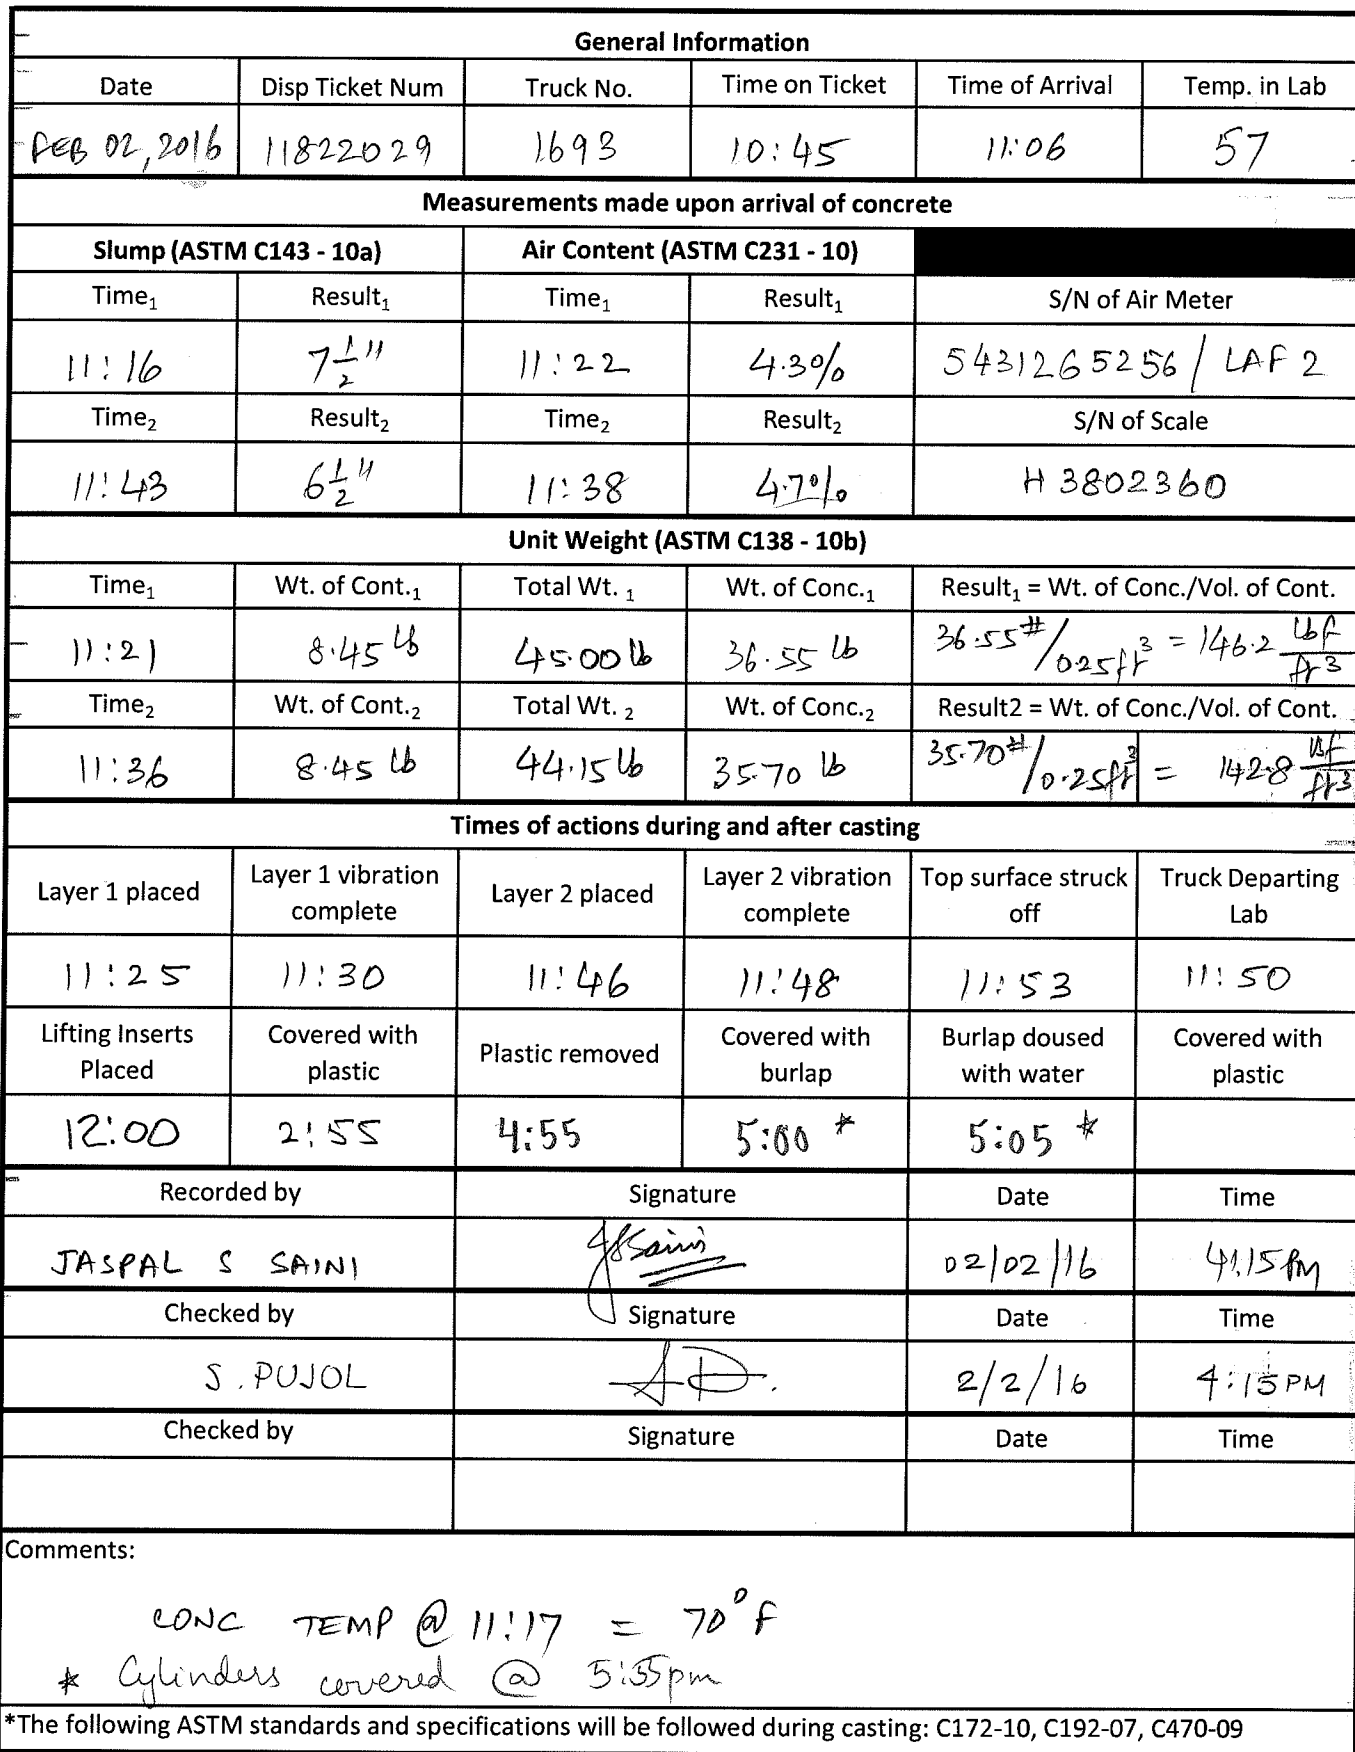 General Information
Date Disp Ticket Num Truck No. Time on Ticket Time of Arrival Temp. in Lab
FEB 02, 2016 11822029 1693 10:45 11:06 57
Measurements made upon arrival of concrete
Slump (ASTM C143 - 10a) Air Content (ASTM C231 - 10)
Time₁ Result₁ Time₁ Result₁ S/N of Air Meter
11:16 7 1/2" 11:22 4.3% 5431265256 / LAF 2
Time₂ Result₂ Time₂ Result₂ S/N of Scale
11:43 6 1/2" 11:38 4.7% H 3802360
Unit Weight (ASTM C138 - 10b)
Time₁ Wt. of Cont.₁ Total Wt. ₁ Wt. of Conc.₁ Result₁ = Wt. of Conc./Vol. of Cont.
11:21 8.45 lb 45.00 lb 36.55 lb 36.55#/0.25ft³ = 146.2 lbf/ft³
Time₂ Wt. of Cont.₂ Total Wt. ₂ Wt. of Conc.₂ Result2 = Wt. of Conc./Vol. of Cont.
11:36 8.45 lb 44.15 lb 35.70 lb 35.70#/0.25ft³ = 142.8 lbf/ft³
Times of actions during and after casting
Layer 1 placed Layer 1 vibration complete Layer 2 placed Layer 2 vibration complete Top surface struck off Truck Departing Lab
11:25 11:30 11:46 11:48 11:53 11:50
Lifting Inserts Placed Covered with plastic Plastic removed Covered with burlap Burlap doused with water Covered with plastic
12:00 2:55 4:55 5:00 * 5:05 *
Recorded by Signature Date Time
JASPAL S SAINI JSSaini 02/02/16 4:15 PM
Checked by Signature Date Time
S. PUJOL 2/2/16 4:15 PM
Checked by Signature Date Time
Comments:
CONC TEMP @ 11:17 = 70°F
* Cylinders covered @ 5:35pm
*The following ASTM standards and specifications will be followed during casting: C172-10, C192-07, C470-09